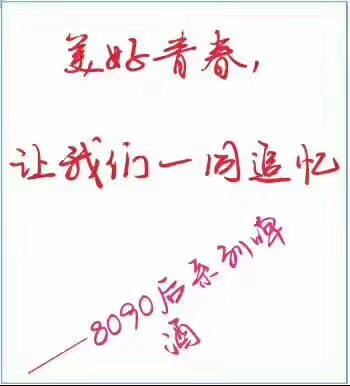 美好青春,
让我们一同追忆
——8090后系列啤
酒